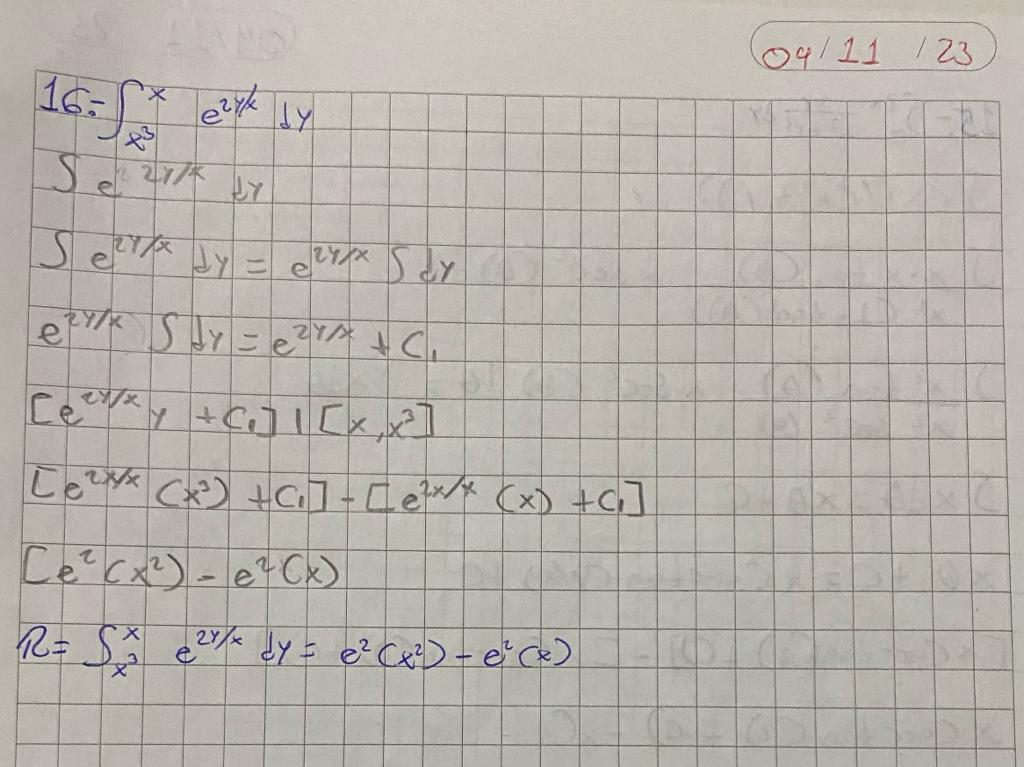 04/11/23
16:- ∫_{x³}^{x} e^{2y/x} dy
∫ e^{2y/x} dy
∫ e^{2y/x} dy = e^{2y/x} ∫ dy
e^{2y/x} ∫ dy = e^{2y/x} + C₁
[e^{2y/x} y + C₁] | [x, x³]
[e^{2x/x} (x³) + C₁] - [e^{2x/x} (x) + C₁]
[e² (x²) - e² (x)
R = ∫_{x³}^{x} e^{2y/x} dy = e² (x²) - e² (x)